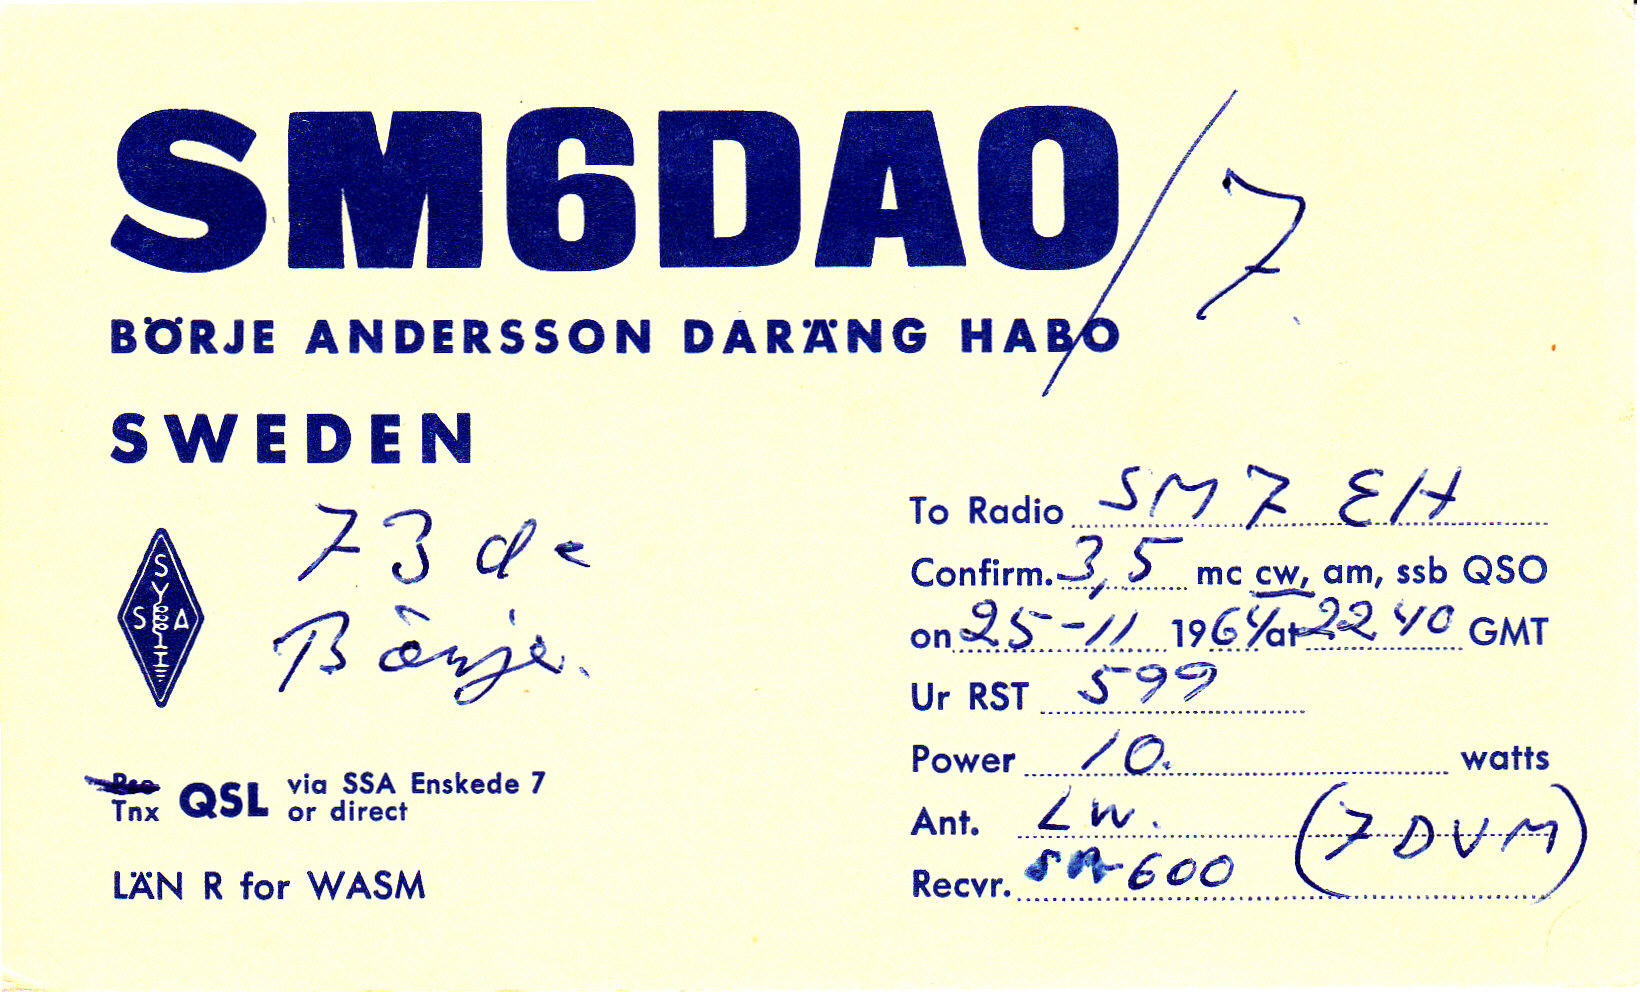 SM6DAO/7
BÖRJE ANDERSSON DARÄNG HABO
SWEDEN
73 de
Börje.
S
Y
S S A
To Radio SM7EH
Confirm. 3,5 mc cw, am, ssb QSO
on 25-11 1964 at 2240 GMT
Ur RST 599
Power 10. watts
Ant. LW.
Recvr. -600 (7DVM)
Pse
Tnx QSL via SSA Enskede 7
or direct
LÄN R for WASM